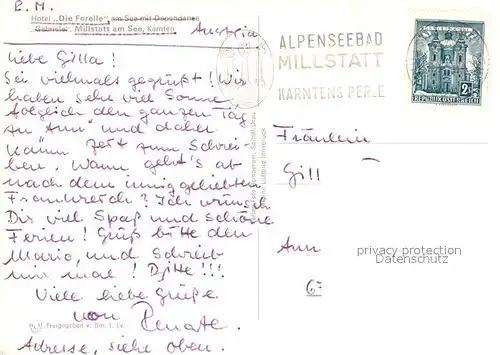 P. M.
Hotel „Die Forelle“, am See mit Dependance
Gabriele, Millstatt am See, Kärnten
Austria
Liebe Gilla!
Sei vielmals gegrüßt! Wir
haben sehr viel Sonne
folglich den ganzen Tag
zu "tun" und daher
kaum Zeit zum Schrei-
ben. Wann geht's ab
nach dem inniggeliebten
Frankreich? Ich wünsch
Dir viel Spaß und schöne
Ferien! Grüß bitte den
Mario, und schreib
mir mal! Bitte!!!
Viele liebe Grüße
von Renate.
Adresse, siehe oben.
Freigegeben v. Bm. f. Lv.
ALPENSEEBAD
MILLSTATT
KÄRNTENS PERLE
2.50
REPUBLIK ÖSTERREICH
Fräulein
Gill
Ann
privacy protection
Datenschutz